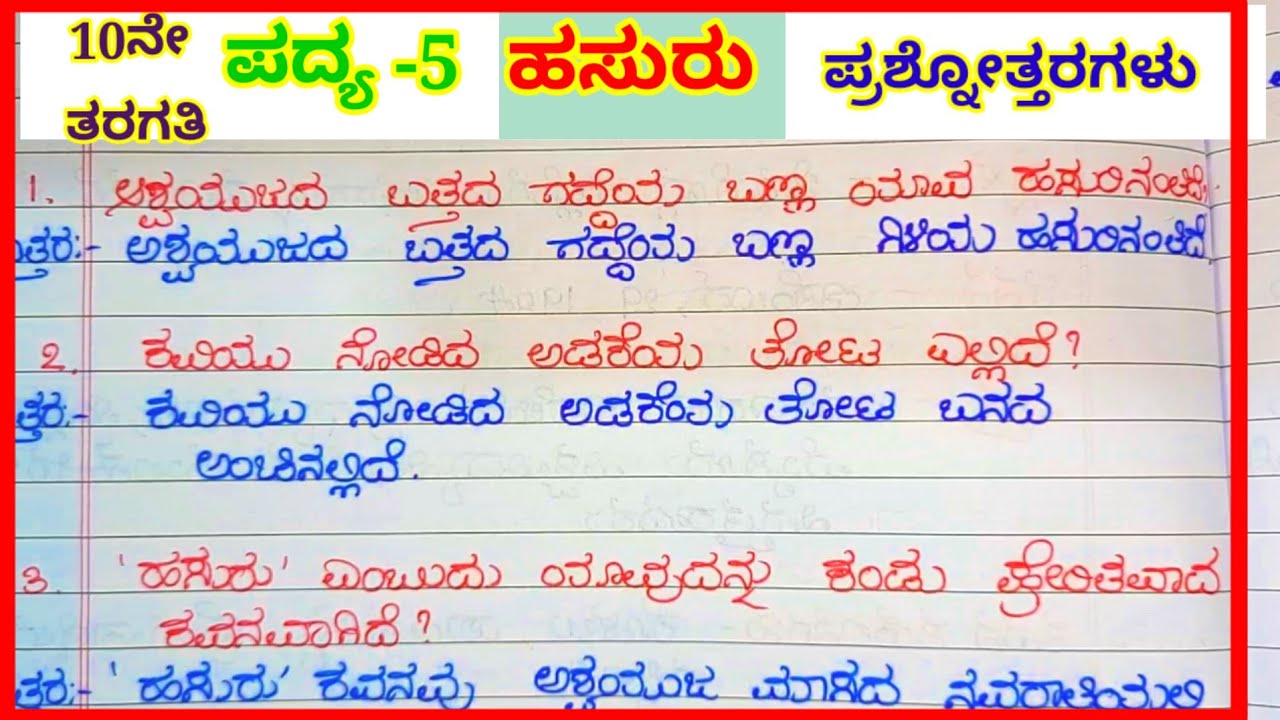 10ನೇ ತರಗತಿ ಪದ್ಯ -5 ಹಸುರು ಪ್ರಶ್ನೋತ್ತರಗಳು
1. ಅಶ್ವಯುಜದ ಬತ್ತದ ಗದ್ದೆಯ ಬಣ್ಣ ಯಾವ ಹಸುರಿನಂತಿದೆ
ತ್ತರ:- ಅಶ್ವಯುಜದ ಬತ್ತದ ಗದ್ದೆಯ ಬಣ್ಣ ಗಿಳಿಯ ಹಸುರಿನಂತಿದೆ
2. ಕವಿಯು ನೋಡಿದ ಅಡಕೆಯ ತೋಟ ಎಲ್ಲಿದೆ?
ತ್ತರ:- ಕವಿಯು ನೋಡಿದ ಅಡಕೆಯ ತೋಟ ಬನದ
ಅಂಚಿನಲ್ಲಿದೆ.
3. 'ಹಸುರು' ಎಂಬುದು ಯಾವುದನ್ನು ಕಂಡು ಪ್ರೇರಿತವಾದ
ಕವನವಾಗಿದೆ?
ತರ:- 'ಹಸುರು' ಕವನವು ಅಶ್ವಯುಜ ಮಾಸದ ನವರಾತ್ರಿಯಲಿ